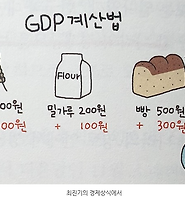 GDP 계산법
Flour
00원 밀가루 200원 빵 500원
00원 + 100원 + 300원
최진기의 경제상식에서